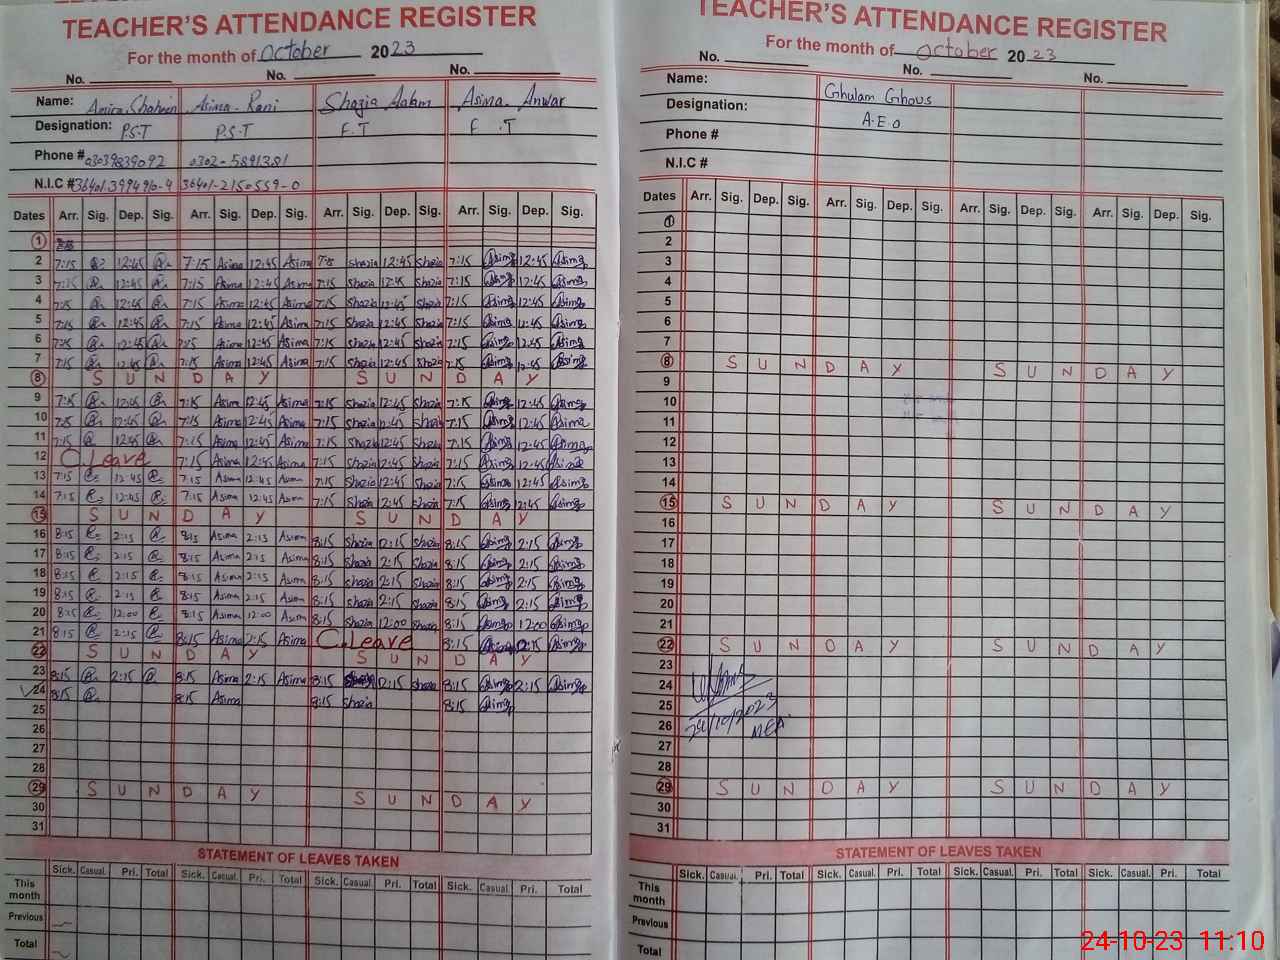 TEACHER'S ATTENDANCE REGISTER
For the month of October 2023
No. No. No.
Name: Amira Shaheen Asima Rani Shazia Aslam Asima Anwar
Designation: P.S.T P.S.T E.T E.T
Phone # 03039839092 0302-5891381
N.I.C # 36401-2150559-0
Dates Arr. Sig. Dep. Sig. Arr. Sig. Dep. Sig. Arr. Sig. Dep. Sig. Arr. Sig. Dep. Sig.
1
2 7:15 12:45 7:15 Asima 12:45 Asima 7:15 Shazia 12:45 Shazia 7:15 Asima 12:45 Asima
3 7:15 12:45 7:15 Asima 12:45 Asima 7:15 Shazia 12:45 Shazia 7:15 Asima 12:45 Asima
4 7:15 12:45 7:15 Asima 12:45 Asima 7:15 Shazia 12:45 Shazia 7:15 Asima 12:45 Asima
5 7:15 12:45 7:15 Asima 12:45 Asima 7:15 Shazia 12:45 Shazia 7:15 Asima 12:45 Asima
6 7:15 12:45 7:15 Asima 12:45 Asima 7:15 Shazia 12:45 Shazia 7:15 Asima 12:45 Asima
7 7:15 12:45 7:15 Asima 12:45 Asima 7:15 Shazia 12:45 Shazia 7:15 Asima 12:45 Asima
8 S U N D A Y S U N D A Y
9 7:15 12:45 7:15 Asima 12:45 Asima 7:15 Shazia 12:45 Shazia 7:15 Asima 12:45 Asima
10 7:15 12:45 7:15 Asima 12:45 Asima 7:15 Shazia 12:45 Shazia 7:15 Asima 12:45 Asima
11 7:15 12:45 7:15 Asima 12:45 Asima 7:15 Shazia 12:45 Shazia 7:15 Asima 12:45 Asima
12 C.Leave 7:15 Asima 12:45 Asima 7:15 Shazia 12:45 Shazia 7:15 Asima 12:45 Asima
13 7:15 12:45 7:15 Asima 12:45 Asima 7:15 Shazia 12:45 Shazia 7:15 Asima 12:45 Asima
14 7:15 12:45 7:15 Asima 12:45 Asima 7:15 Shazia 12:45 Shazia 7:15 Asima 12:45 Asima
15 S U N D A Y S U N D A Y
16 8:15 2:15 8:15 Asima 2:15 Asima 8:15 Shazia 2:15 Shazia 8:15 Asima 2:15 Asima
17 8:15 2:15 8:15 Asima 2:15 Asima 8:15 Shazia 2:15 Shazia 8:15 Asima 2:15 Asima
18 8:15 2:15 8:15 Asima 2:15 Asima 8:15 Shazia 2:15 Shazia 8:15 Asima 2:15 Asima
19 8:15 2:15 8:15 Asima 2:15 Asima 8:15 Shazia 2:15 Shazia 8:15 Asima 2:15 Asima
20 8:15 12:00 8:15 Asima 12:00 Asima 8:15 Shazia 12:00 Shazia 8:15 Asima 12:00 Asima
21 8:15 2:15 8:15 Asima 2:15 Asima C.Leave 8:15 Asima 2:15 Asima
22 S U N D A Y S U N D A Y
23 8:15 2:15 8:15 Asima 2:15 Asima 8:15 2:15 Shazia 8:15 Asima 2:15 Asima
24 8:15 8:15 Asima 8:15 Shazia 8:15 Asima
25
26
27
28
29 S U N D A Y S U N D A Y
30
31
STATEMENT OF LEAVES TAKEN
Sick. Casual. Pri. Total Sick. Casual. Pri. Total Sick. Casual. Pri. Total Sick. Casual. Pri. Total
This month
Previous
Total
TEACHER'S ATTENDANCE REGISTER
For the month of October 2023
No. No. No.
Name: Ghulam Ghous
Designation: A.E.O
Phone #
N.I.C #
Dates Arr. Sig. Dep. Sig. Arr. Sig. Dep. Sig. Arr. Sig. Dep. Sig. Arr. Sig. Dep. Sig.
1
2
3
4
5
6
7
8 S U N D A Y S U N D A Y
9
10
11
12
13
14
15 S U N D A Y S U N D A Y
16
17
18
19
20
21
22 S U N D A Y S U N D A Y
23
24
25
26 24/10/2023 MEA
27
28
29 S U N D A Y S U N D A Y
30
31
STATEMENT OF LEAVES TAKEN
Sick. Casual. Pri. Total Sick. Casual. Pri. Total Sick. Casual. Pri. Total Sick. Casual. Pri. Total
This month
Previous
Total
24-10-23 11:10